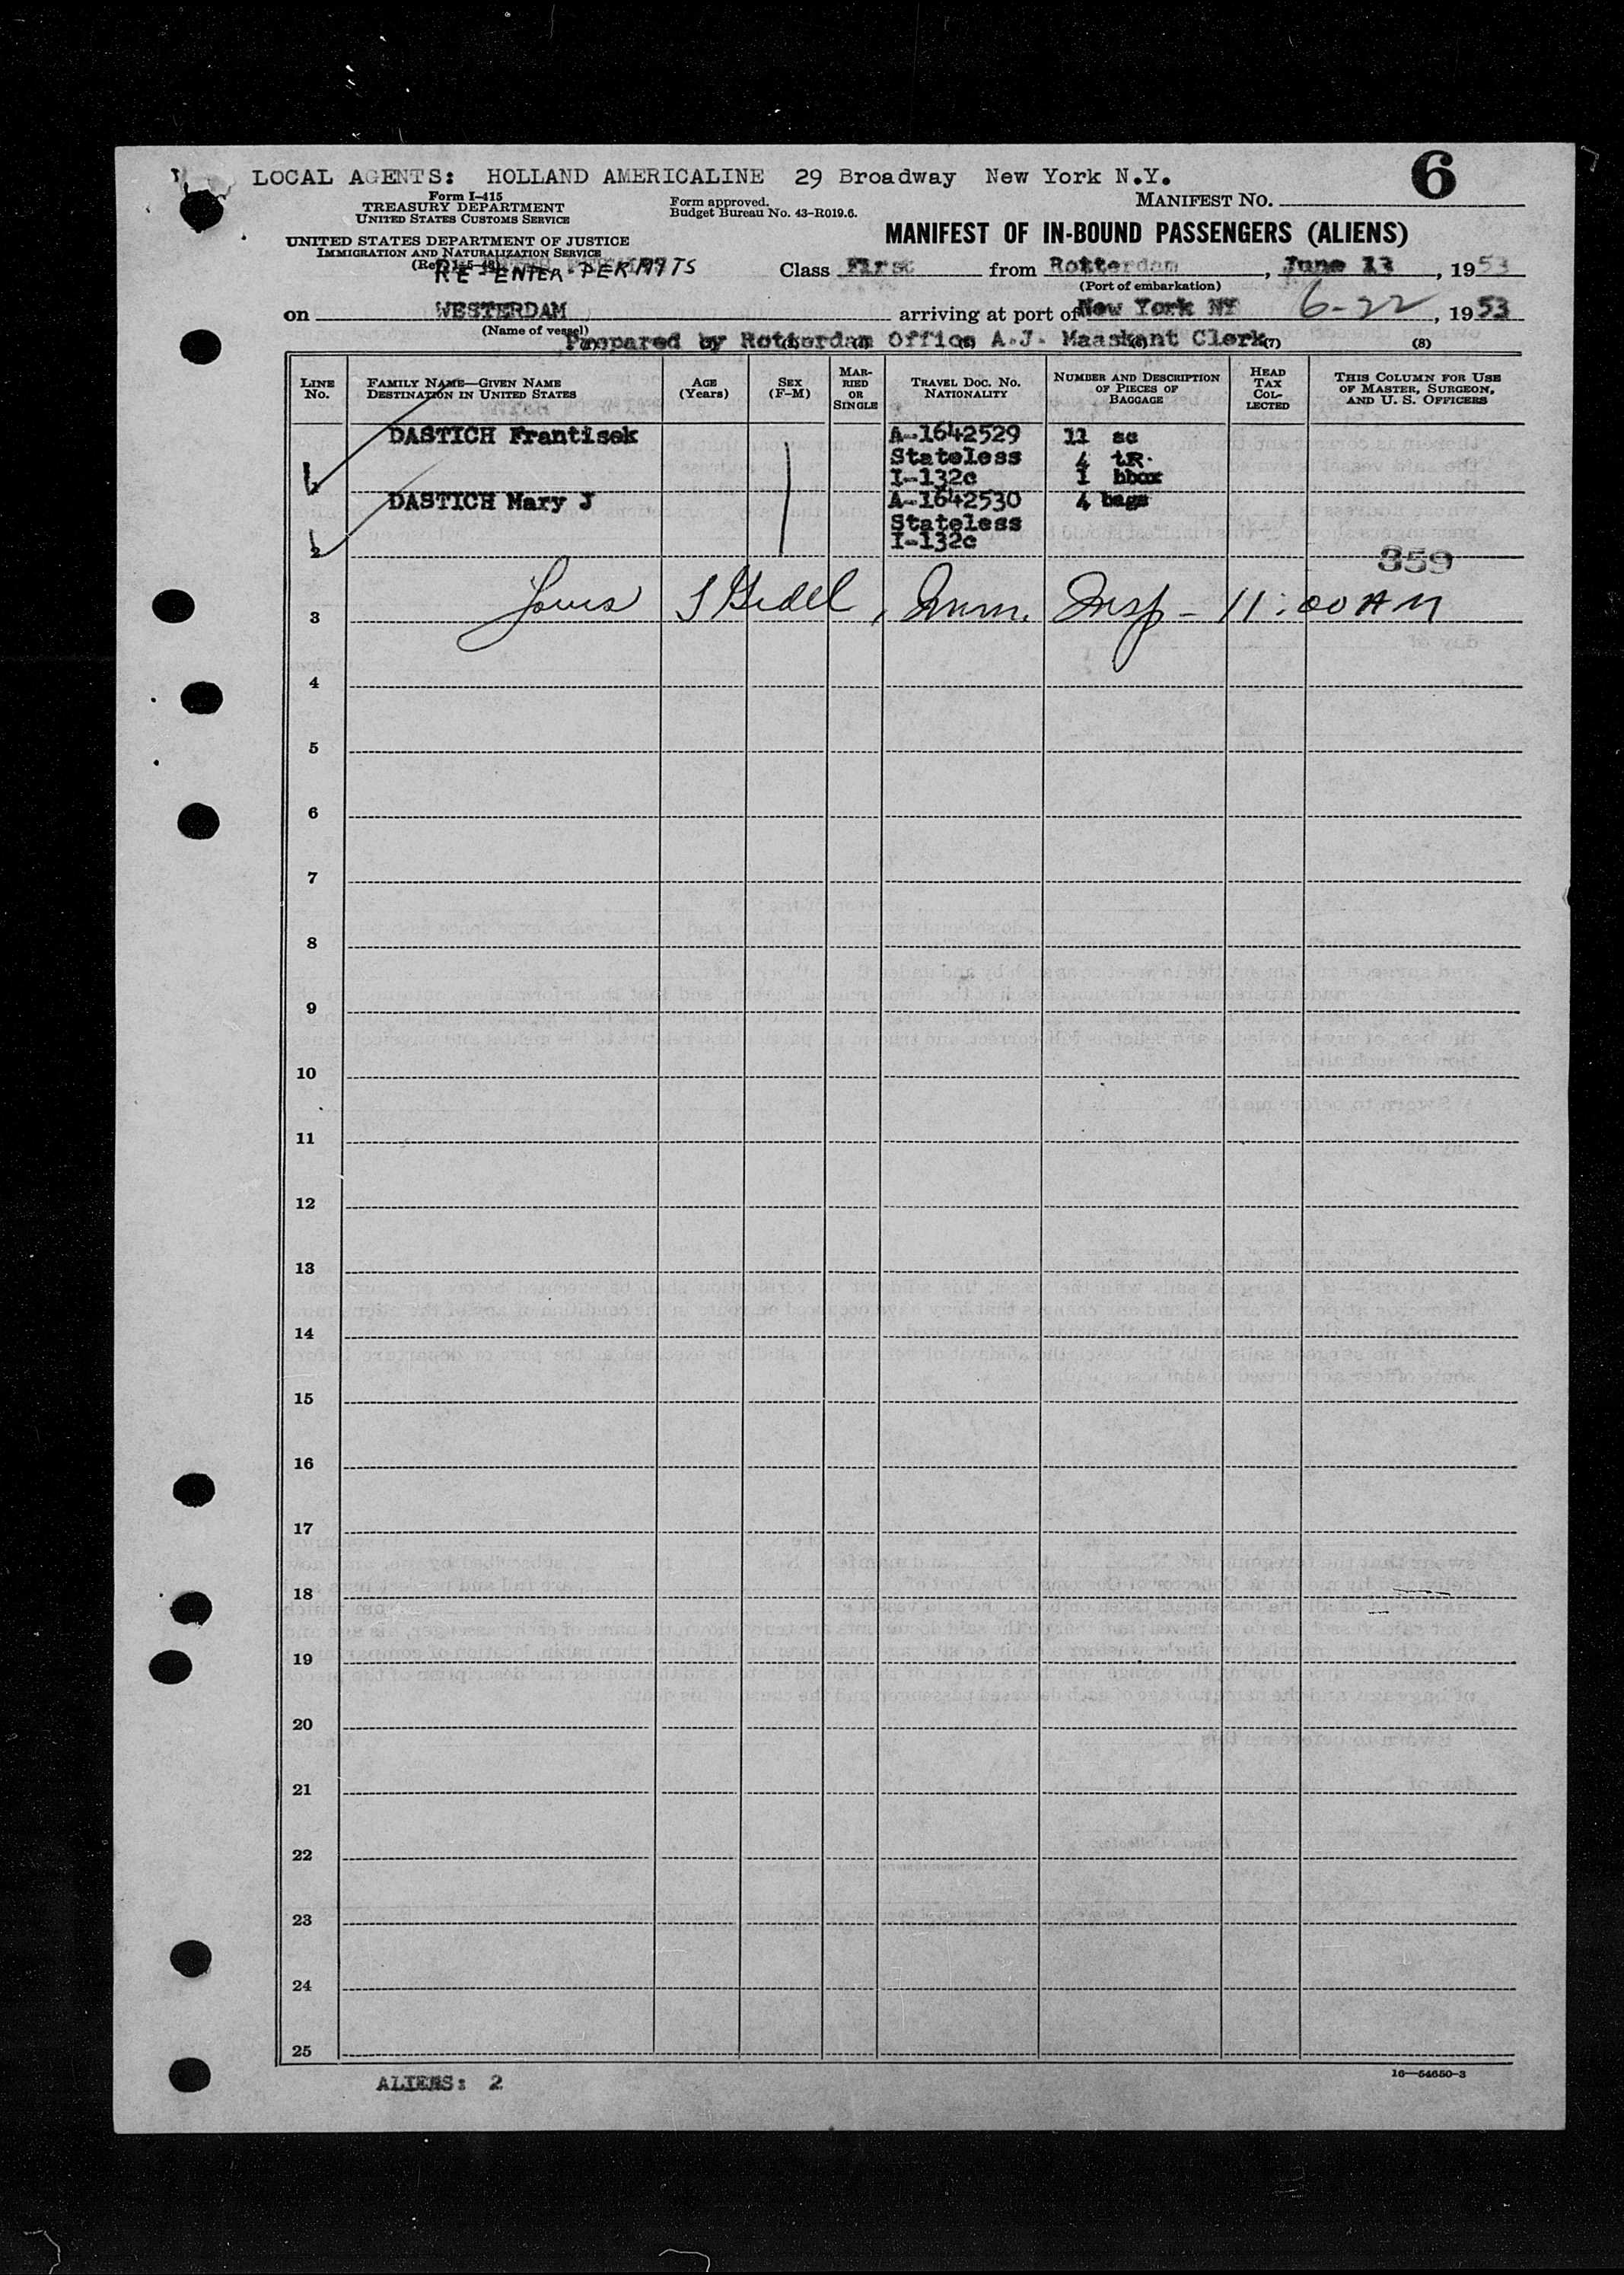 LOCAL AGENTS: HOLLAND AMERICALINE 29 Broadway New York N.Y.
6
Form I-415
TREASURY DEPARTMENT
UNITED STATES CUSTOMS SERVICE
Form approved.
Budget Bureau No. 43-R019.6.
MANIFEST NO.
UNITED STATES DEPARTMENT OF JUSTICE
IMMIGRATION AND NATURALIZATION SERVICE
MANIFEST OF IN-BOUND PASSENGERS (ALIENS)
RE-ENTER-PERMITS
Class First from Rotterdam, June 13, 1953
(Port of embarkation)
on WESTERDAM arriving at port of New York NY 6-22, 1953
(Name of vessel)
Prepared by Rotterdam Office A.J. Maaskant Clerk
(7) (8)
LINE No.
FAMILY NAME—GIVEN NAME DESTINATION IN UNITED STATES
AGE (Years)
SEX (F-M)
MARRIED OR SINGLE
TRAVEL DOC. NO. NATIONALITY
NUMBER AND DESCRIPTION OF PIECES OF BAGGAGE
HEAD TAX COLLECTED
THIS COLUMN FOR USE OF MASTER, SURGEON, AND U. S. OFFICERS
DASTICH Frantisek A-1642529 11 sc
Stateless 4 tR.
1 I-132c 1 bbox
DASTICH Mary J A-1642530 4 bags
Stateless
2 I-132c
359
3 Louis Imm. Insp - 11:00 AM
4
5
6
7
8
9
10
11
12
13
14
15
16
17
18
19
20
21
22
23
24
25
ALIENS: 2
16—54650-3